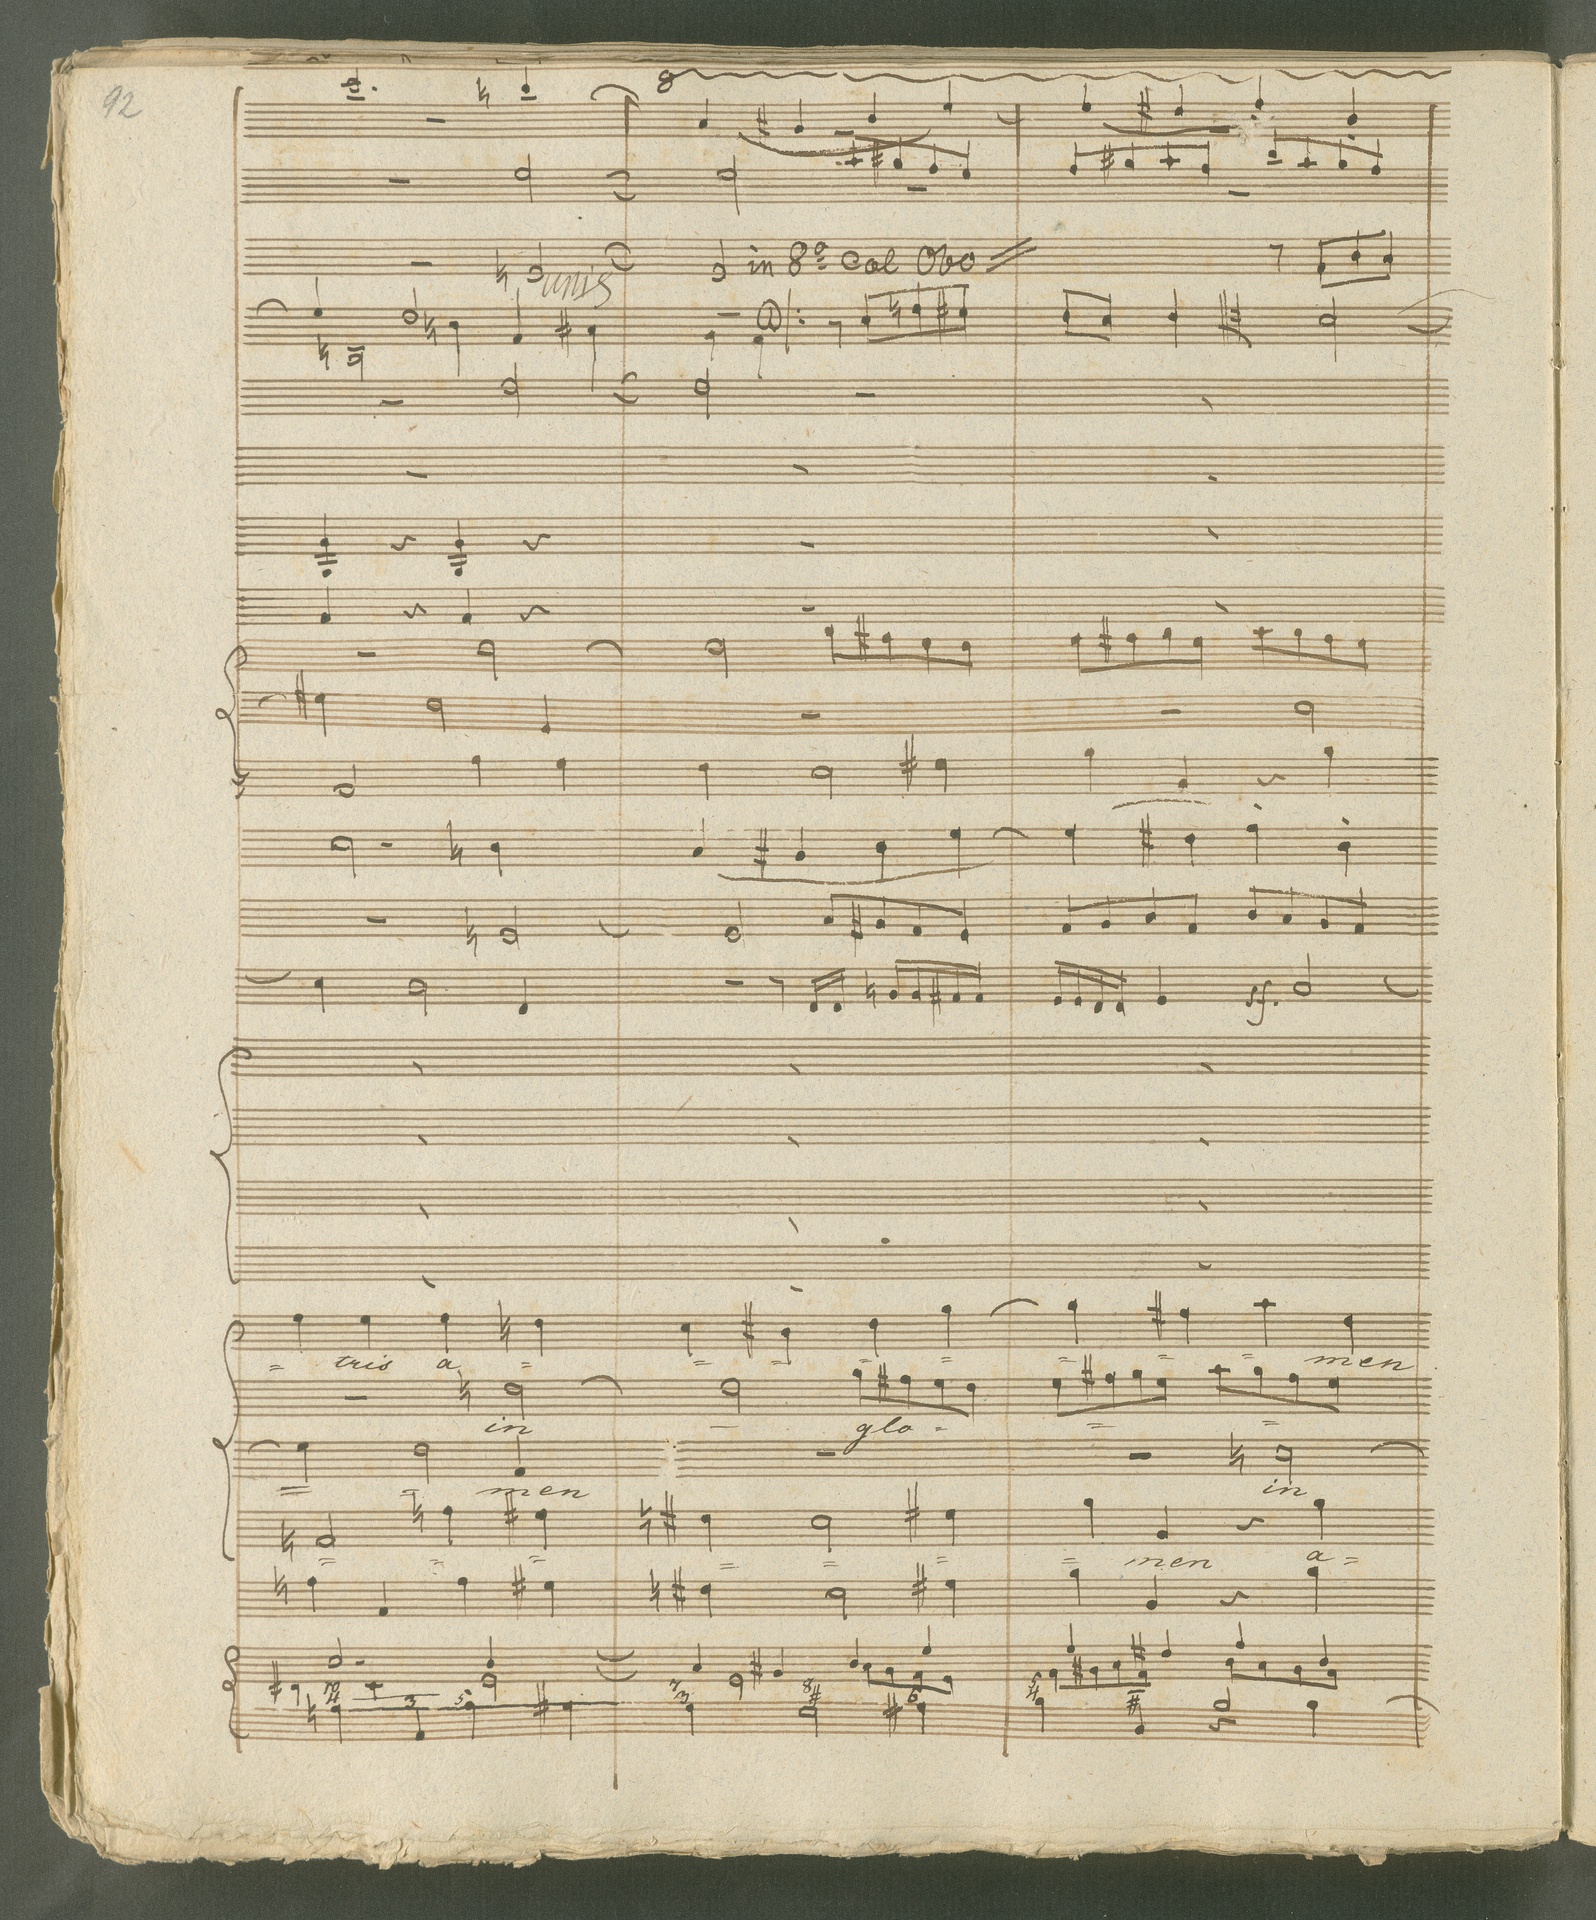 92
8
in 8º Col Obo
unis
sf.
= tris a = = = = = = = = men
in — glo - = =
= = men in
= = = = = = = men a =
3 5 7 3 8 6 5 4